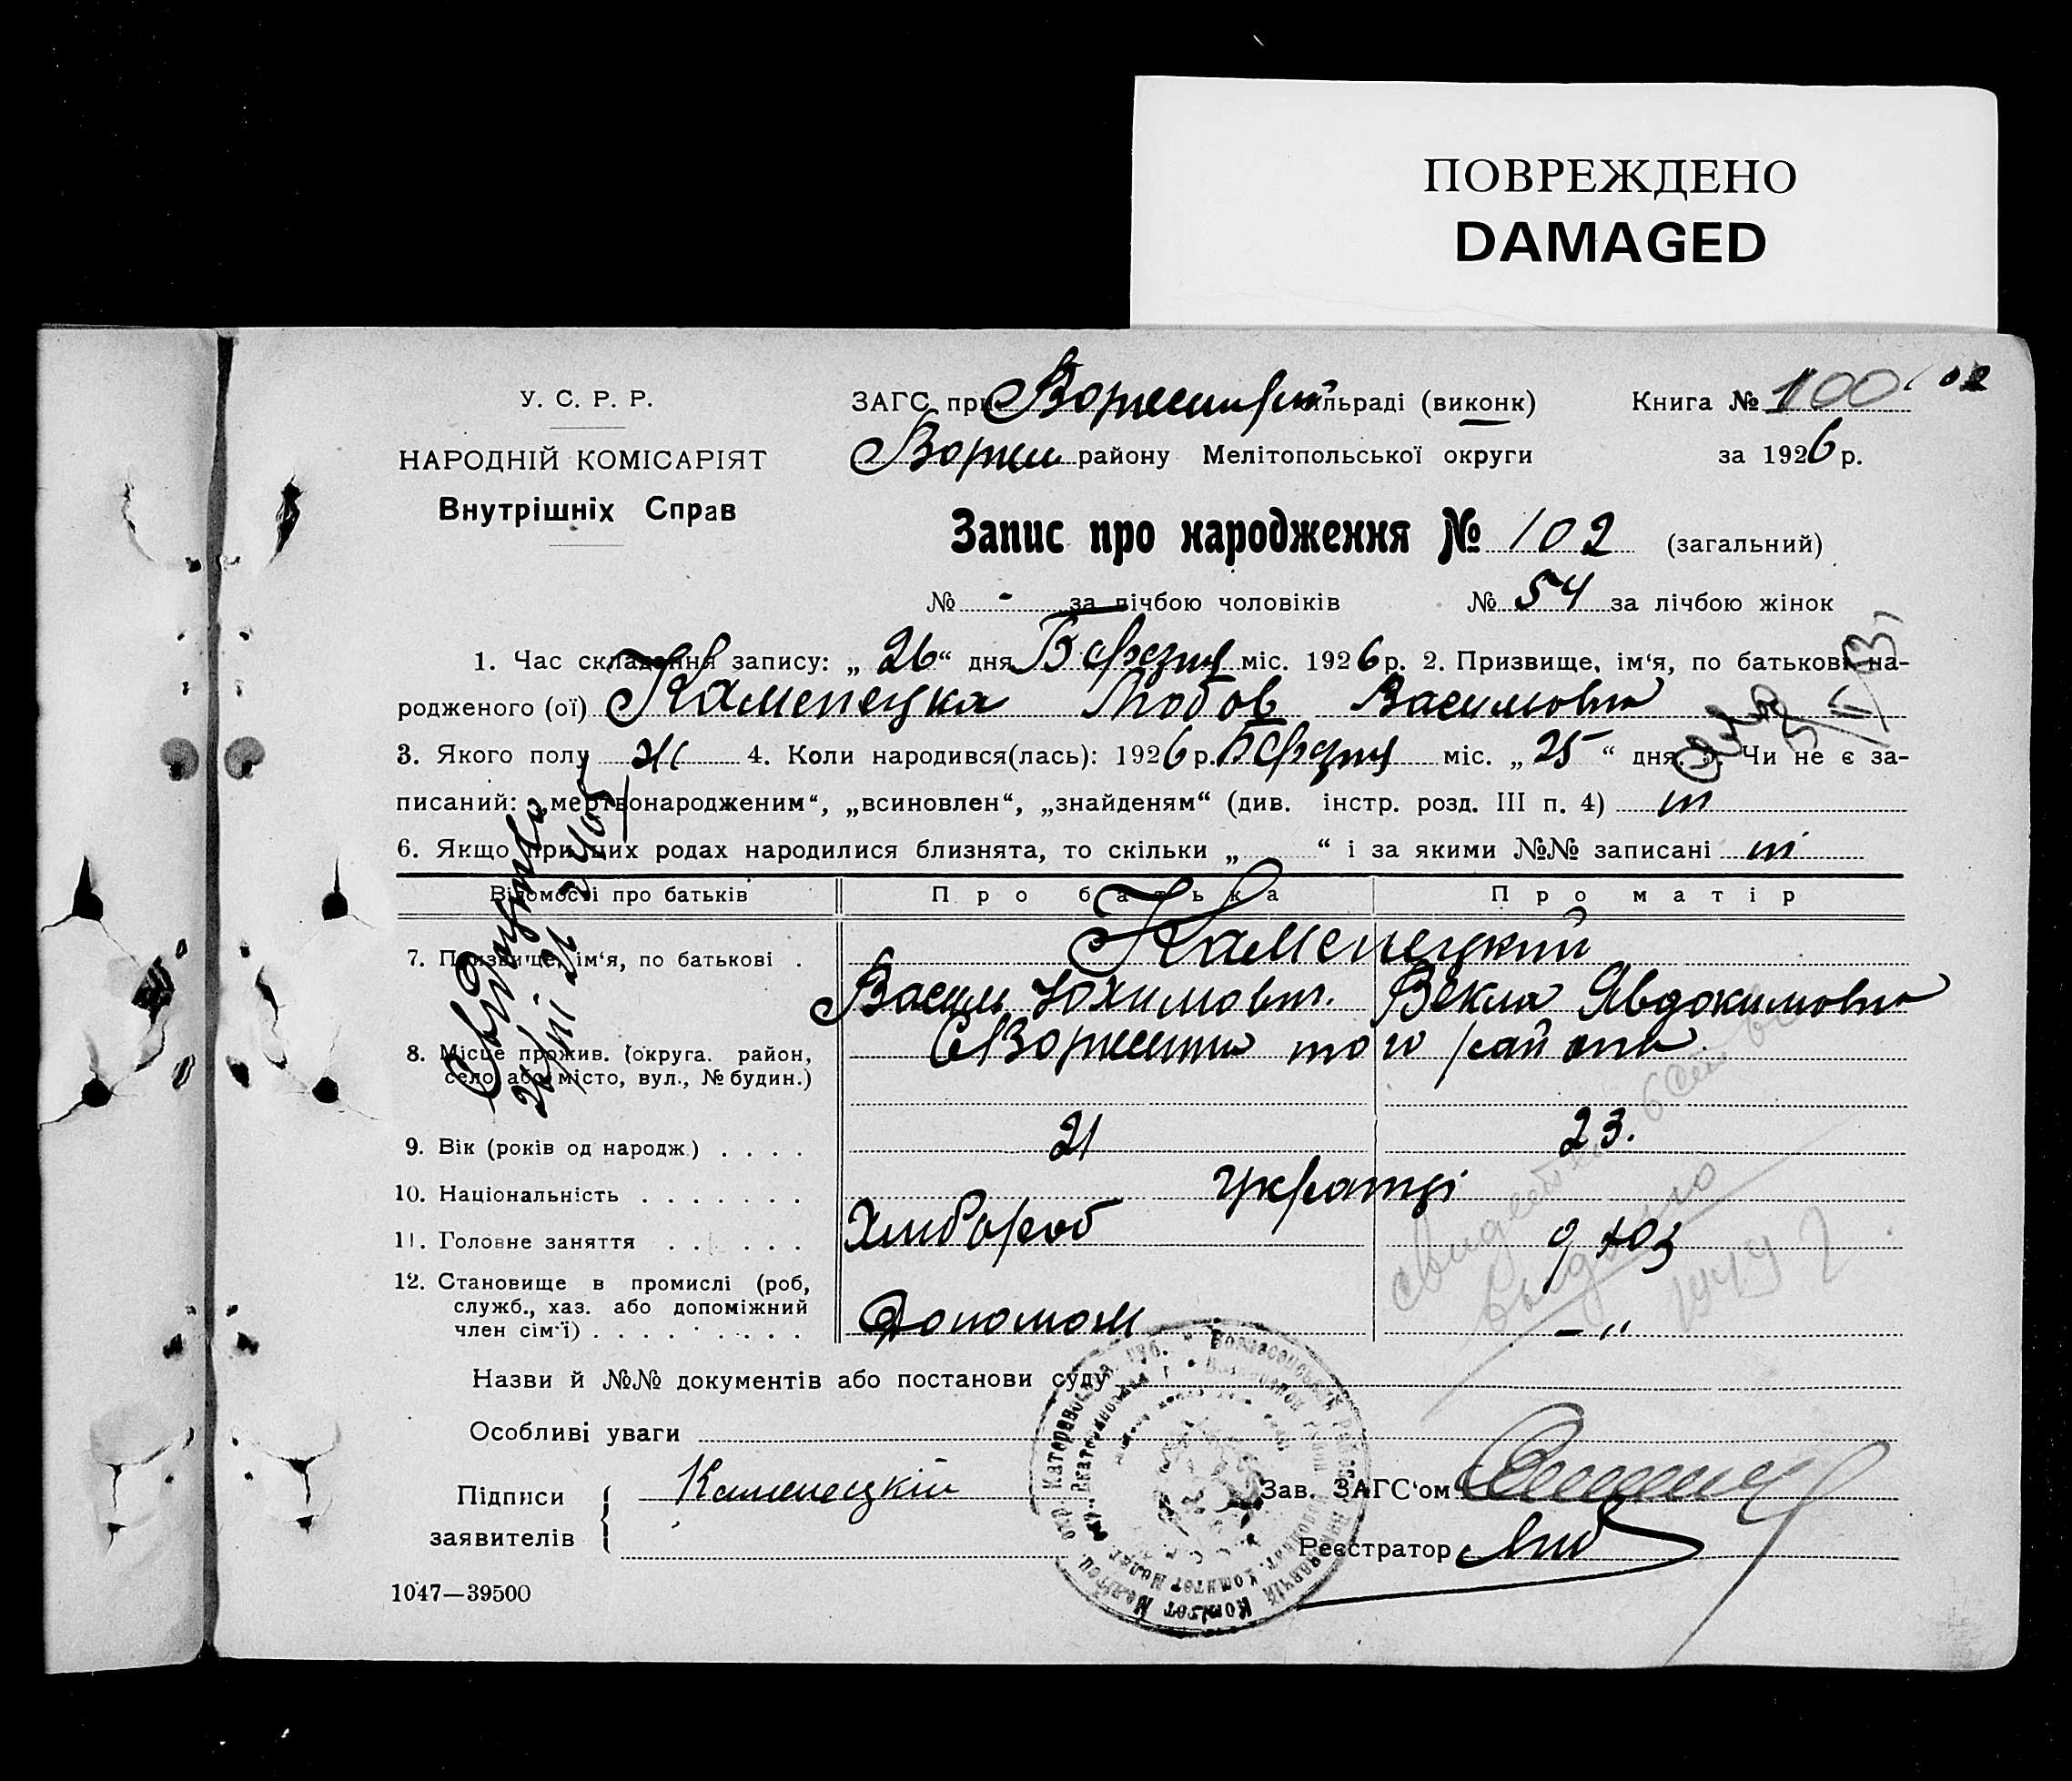 ПОВРЕЖДЕНО
DAMAGED
У. С. Р. Р.
НАРОДНІЙ КОМІСАРІЯТ
Внутрішніх Справ
ЗАГС при сільраді (виконк)
району Мелітопольської округи
Книга № 100 102
за 1926 р.
Запис про народження № 102 (загальний)
№ - за лічбою чоловіків № 54 за лічбою жінок
1. Час складання запису: „ 26 “ дня Березня міс. 1926 р. 2. Призвище, ім‘я, по батькові на-
родженого (ої) Каменецка Любов Василювна
3. Якого полу ж 4. Коли народився(лась): 1926 р. Березня міс. „ 25 “ дня. 5. Чи не є за-
писаний: „мертвонародженим“, „всиновлен“, „знайденям“ (див. інстр. розд. III п. 4) ні
6. Якщо при цих родах народилися близнята, то скільки „ “ і за якими №№ записані ні
Відомості про батьків Про батька Про матір
7. Призвище, ім‘я, по батькові .
Каменецкий
Василь Юхимович. Векла Явдокимовна
8. Місце прожив. (округа. район,
село або місто, вул., № будин.)
того району
9. Вік (років од народж.) . . . . 21 23.
10. Національність . . . . . . . Українці
11. Головне заняття . . . . . . Хлибороб
12. Становище в промислі (роб,
служб., хаз. або допоміжний
член сім‘ї) . . . . . . . . . . Допомож — „
Назви й №№ документів або постанови суду
Особливі уваги
Підписи
заявителів
Каменецкій
Зав. ЗАГС‘ом
Реєстратор
1047—39500
свидетельство
выдано
1949 г